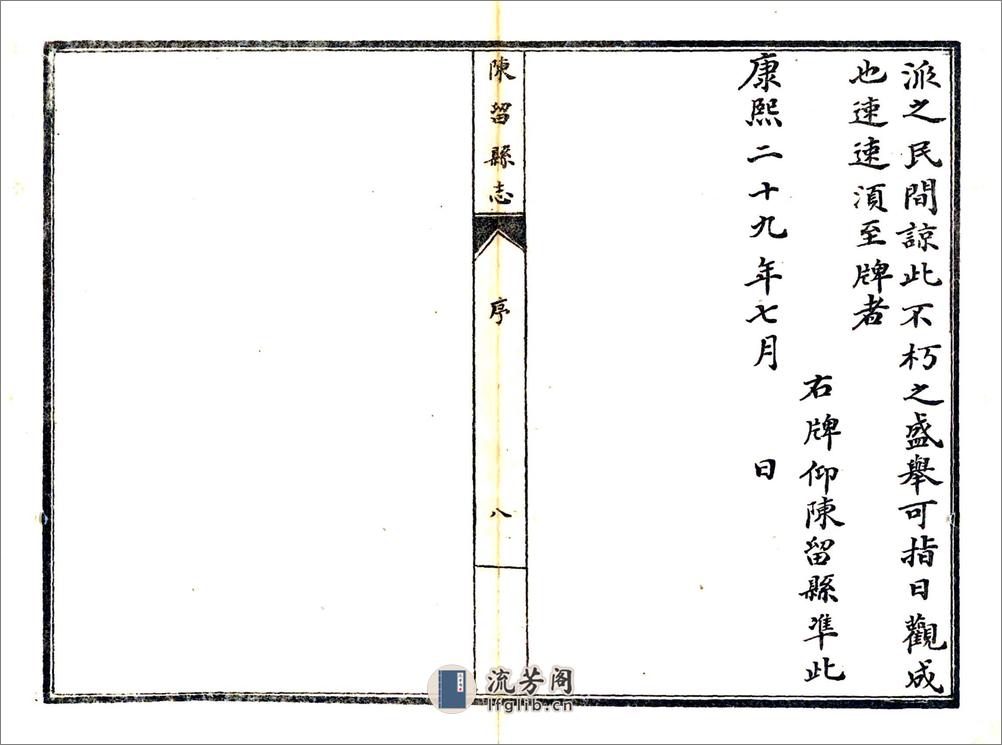 派之民間諒此不朽之盛舉可指日觀成
也速速須至牌者
右牌仰陳留縣準此
康熙二十九年七月　日
陳留縣志
序
八
流芳阁
lfglib.cn